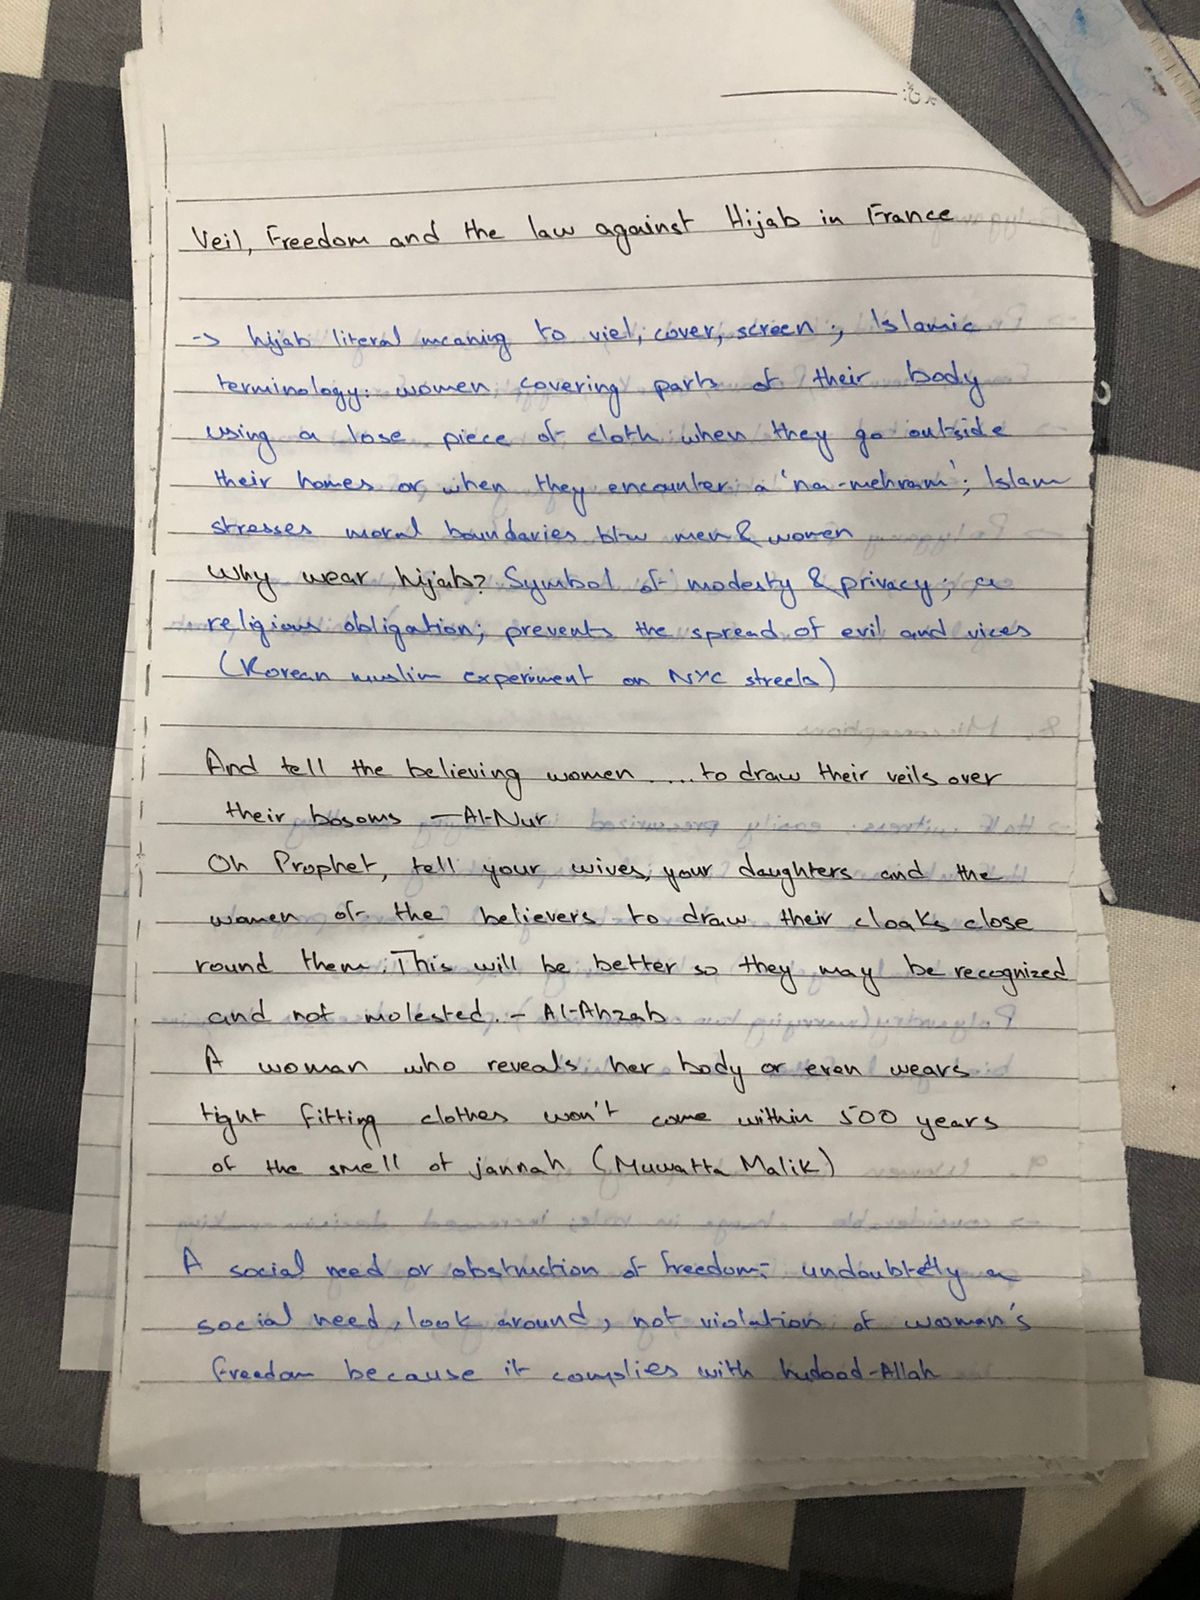 Veil, Freedom and the law against Hijab in France
-> hijab literal meaning to viel, cover, screen; Islamic
terminology: women covering parts of their body
using a lose piece of cloth when they go outside
their homes or when they encounter a 'na-mehram'; Islam
stresses moral boundaries btw men & women
Why wear hijab? Symbol of modesty & privacy; a
religious obligation; prevents the spread of evil and vices
(Korean muslim experiment on NYC streets)
And tell the believing women .... to draw their veils over
their bosoms — Al-Nur
Oh Prophet, tell your wives, your daughters and the
women of the believers to draw their cloaks close
round them. This will be better so they may be recognized
and not molested. - Al-Ahzab
A woman who reveals her body or even wears
tight fitting clothes won't come within 500 years
of the smell of jannah (Muwatta Malik)
A social need or obstruction of freedom:- undoubtetly a
social need, look around, not violation of wooman's
freedom because it complies with hudood-Allah